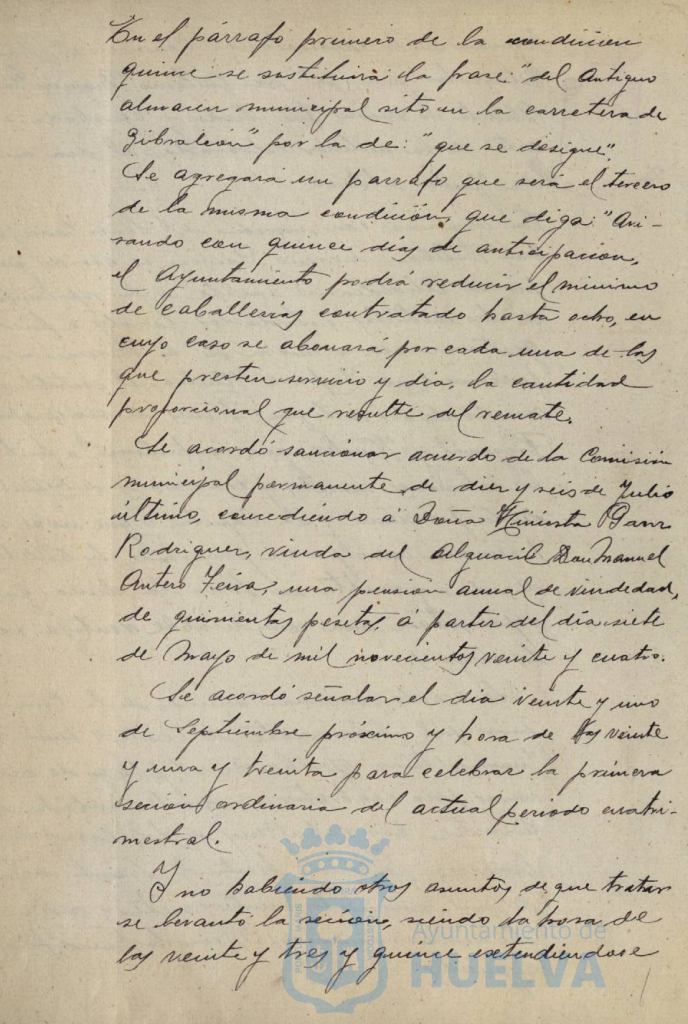 En el párrafo primero de la condicion
quince se sustituirá la frase: "del antiguo
almacen municipal sito en la carretera de
Gibraleón" por la de: "que se designe".
Se agregará un parrafo que será el tercero
de la misma condición, que diga: "Avi-
sando con quince días de anticipación,
el Ayuntamiento podrá reducir el minimo
de caballerías contratado hasta ocho, en
cuyo caso se abonará por cada una de las
que presten servicio y dia, la cantidad
proporcional que resulte del remate.
Se acordó sancionar acuerdo de la Comisión
municipal permanente, de diez y seis de Julio
último, concediendo á Doña
Rodriguez, viuda del Alguacil Don Manuel
Antero una pensión annal de viudedad,
de quinientas pesetas, á partir del día siete
de Mayo de mil novecientos veinte y cuatro.
Se acordó señalar el dia veinte y uno
de Septiembre próximo y hora de las veinte
y una y treinta para celebrar la primera
sesión ordinaria del actual periodo cuatri-
mestral.
Y no habiendo otros asuntos de que tratar
se levantó la sesión, siendo la hora de
las veinte y tres y quince extendiendose
Ayuntamiento de
HUELVA